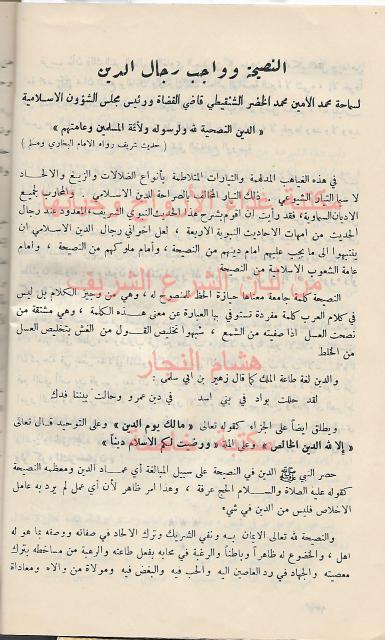 النصيحة وواجب رجال الدين
لسماحة محمد الأمين محمد الخضر الشنقيطي قاضي القضاة ورئيس مجلس الشؤون الاسلامية
« الدين النصيحة لله ولرسوله ولأئمة المسلمين وعامتهم »
( حديث شريف رواه الامام البخاري ومسلم )
في هذه الغياهب المدلهمة والتيارات المتلاطمة بأنواع الضلالات والزيغ والالحاد
لا سيما التيار الشيوعي . ذلك التيار المخالف بالصراحة للدين الاسلامي . والمحارب لجميع
الاديان السماوية، فقد رأيت ان اقوم بشرح هذا الحديث النبوي الشريف، المعدود عند رجال
الحديث من امهات الاحاديث النبوية الاربعة ، لعل اخواني رجال الدين الاسلامي ان
ينتبهوا الى ما يجب عليهم امام دينهم من النصيحة ، وأمام ملوكهم من النصيحة ، وامام
عامة الشعوب الاسلامية من النصيحة
النصيحة كلمة جامعة معناها حيازة الحظ للمنصوح له ، وهي من وجيز الكلام بل ليس
في كلام العرب كلمة مفردة تستوفي بها العبارة عن معنى هذه الكلمة ، وهي مشتقة من
نصحت العسل اذا صفيته من الشمع ، شبهوا تخليص القول من الغش بتخليص العسل
من الخلط
والدين لغة طاعة الملك كما قال زهير بن ابي سلمى :
لقد حللت بواد في بني اسد في دين عمرو وحالت بيننا فدك
ويطلق ايضاً على الجزاء كقوله تعالى « مالك يوم الدين » وعلى التوحيد قال تعالى
« إلا لله الدين الخالص » وعلى الملة « ورضيت لكم الاسلام ديناً »
حصر النبي ﷺ الدين في النصيحة على سبيل المبالغة أي عماد الدين ومعظمه النصيحة
كقوله عليه الصلاة والسلام الحج عرفة ، وهذا امر ظاهر لأن أي عمل لم يرد به عامله
الاخلاص فليس من الدين في شيء
والنصيحة لله تعالى الايمان به ونفي الشريك وترك الالحاد في صفاته ووصفه بما هو له
اهل ، والخضوع له ظاهراً وباطناً والرغبة في محابه بفعل طاعته والرهبة من مساخطه بترك
معصيته والجهاد في رد العاصين اليه والحب فيه والبغض فيه ومولاة من والاه ومعاداة
مكتبة علماء الأشراف وخزانتها
من لسان الشرع الشريف
هشام النجار
مكتبة خاصة